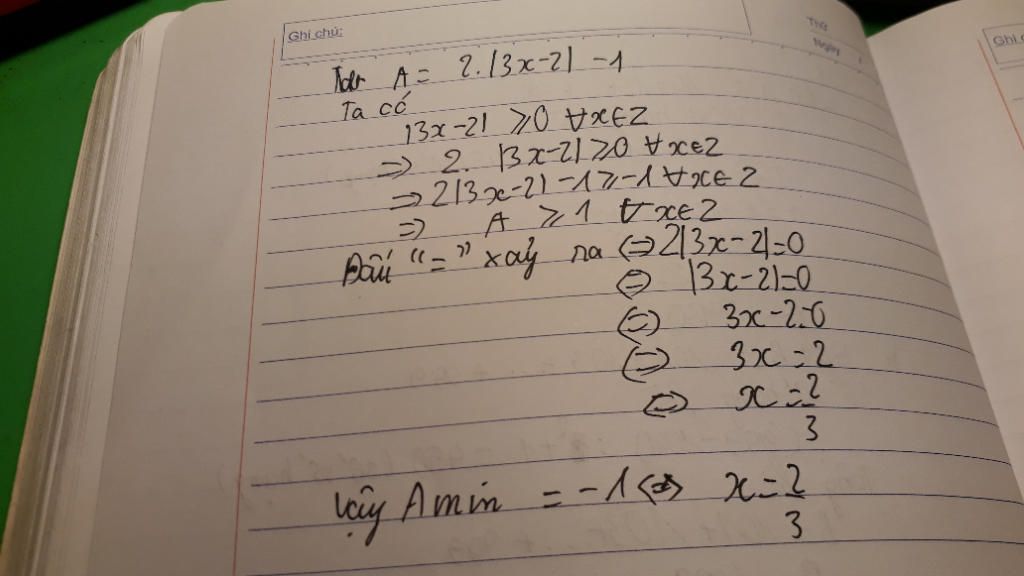 Ghi chú:
Thứ
Ngày
A = 2.|3x-2| -1
Ta có
|3x-2| ≥0 ∀x∈Z
=> 2. |3x-2|≥0 ∀x∈Z
=> 2|3x-2| -1≥-1 ∀x∈Z
=> A ≥ 1 ∀x∈Z
Dấu "=" xảy ra <=> 2|3x-2|=0
<=> |3x-2|=0
<=> 3x-2=0
<=> 3x=2
<=> x=2/3
Vậy A min = -1 <=> x=2/3